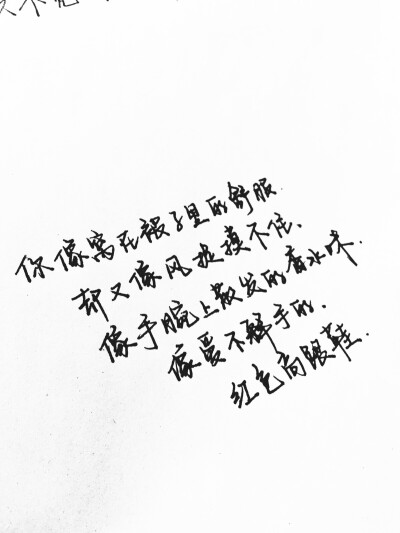 你像窝在被子里的舒服.
却又像风捉摸不住.
像手腕上散发的香水味.
像爱不释手的.
红色高跟鞋.